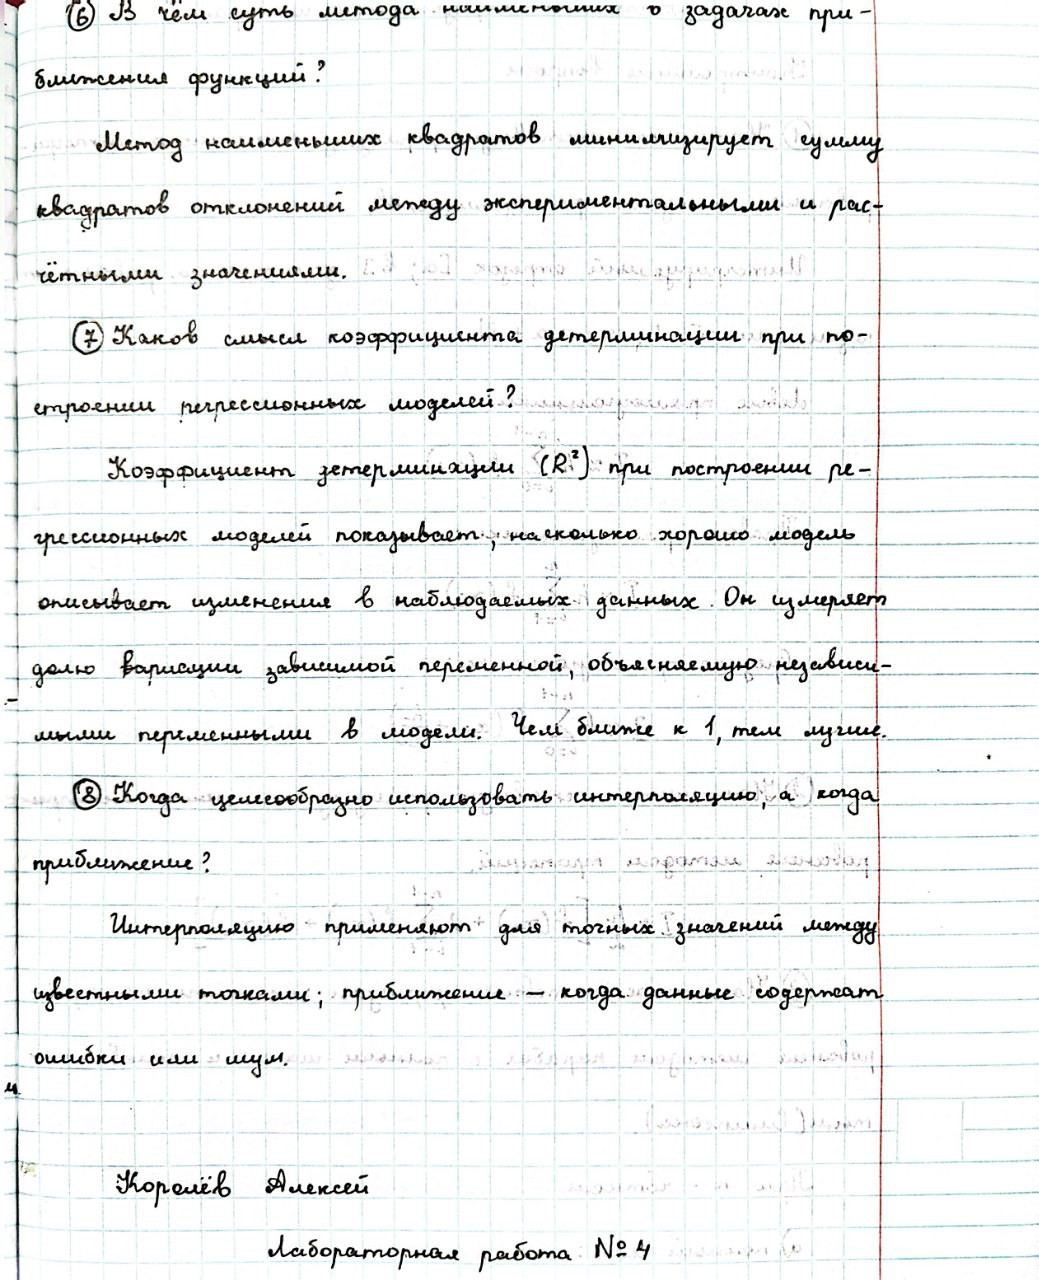 ⑥ В чём суть метода наименьших в задачах при-
ближения функций?
Метод наименьших квадратов минимизирует сумму
квадратов отклонений между экспериментальными и рас-
чётными значениями.
⑦ Каков смысл коэффициента детерминации при по-
строении регрессионных моделей?
Коэффициент детерминации (R²) при построении ре-
грессионных моделей показывает, насколько хорошо модель
описывает изменения в наблюдаемых данных. Он измеряет
долю вариации зависимой переменной, объясняемую независи-
мыми переменными в модели. Чем ближе к 1, тем лучше.
⑧ Когда целесообразно использовать интерполяцию, а когда
приближение?
Интерполяцию применяют для точных значений между
известными точками; приближение — когда данные содержат
ошибки или шум.
Королёв Алексей
Лабораторная работа № 4